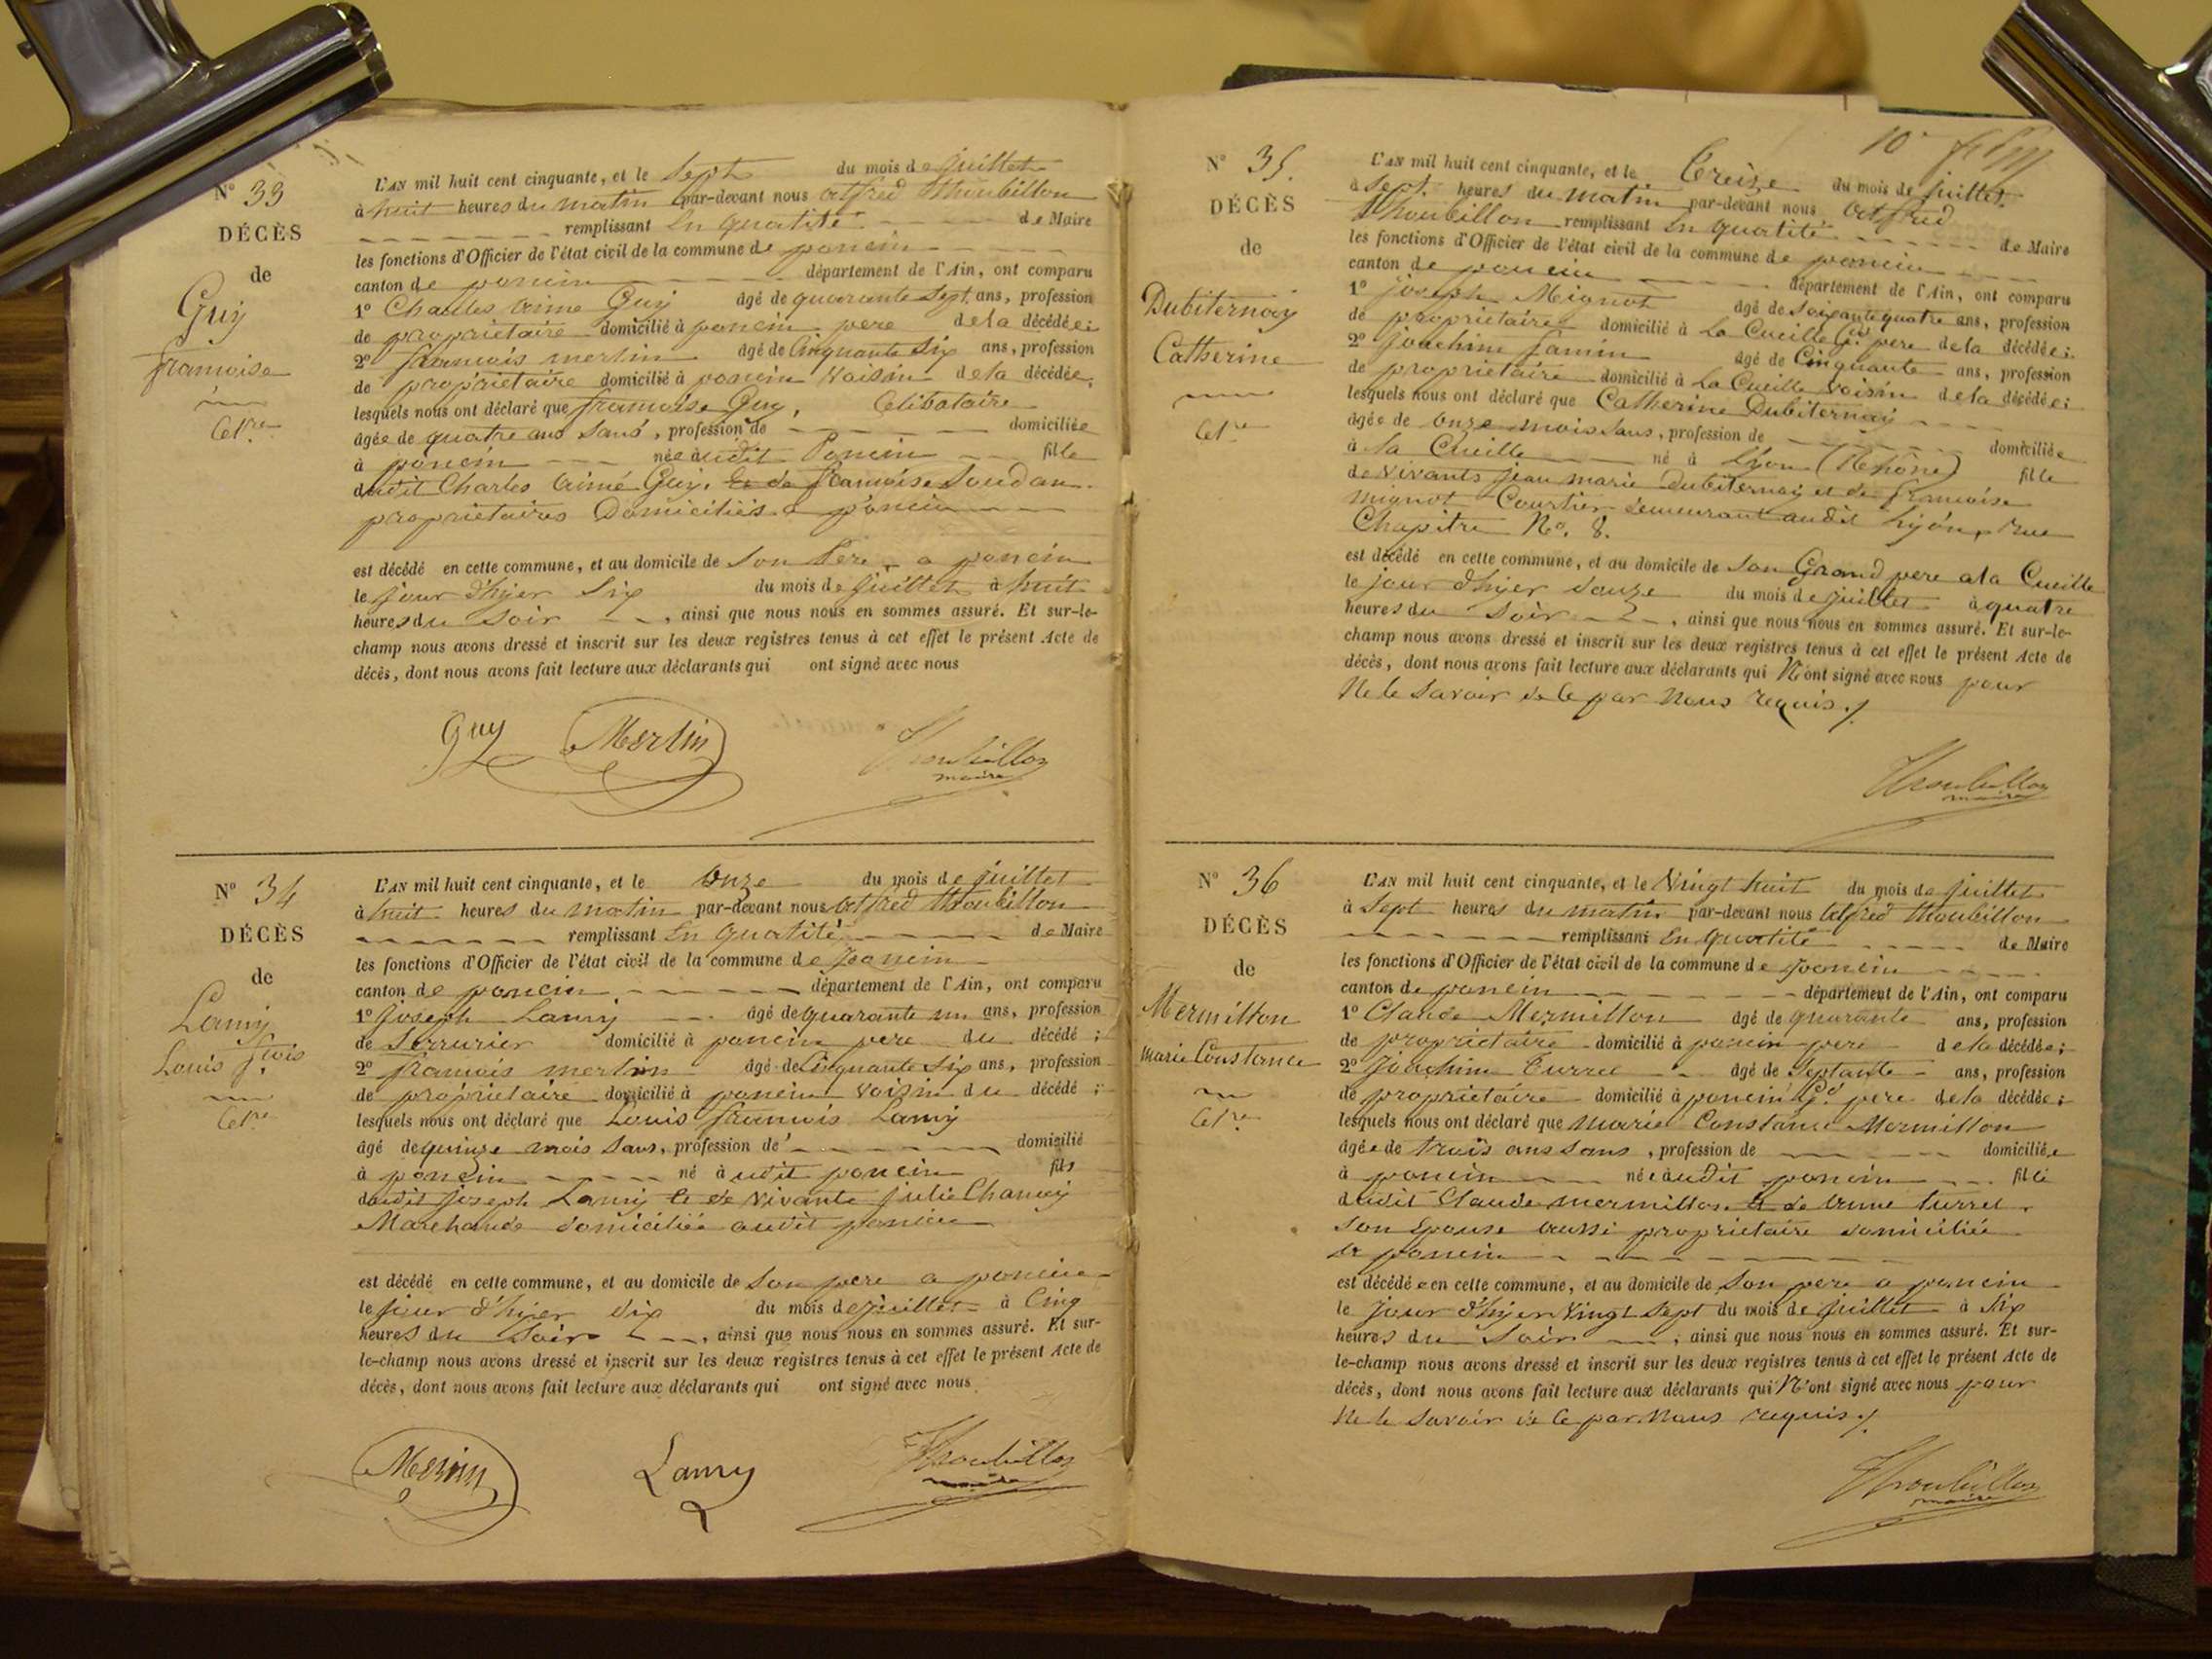 N° 33
DÉCÈS
de
Guy
françoise
Cel.re
L'AN mil huit cent cinquante, et le Sept du mois de juillet
à huit heures du matin par-devant nous Alfred Thoubillon
remplissant En qualité de Maire
les fonctions d'Officier de l'état civil de la commune de poncin
canton de poncin département de l'Ain, ont comparu
1° Charles Aimé Guy âgé de quarante Sept ans, profession
de propriétaire domicilié à poncin pere de la décédée;
2° francois merlin âgé de Cinquante Six ans, profession
de propriétaire domicilié à poncin Voisin de la décédée,
lesquels nous ont déclaré que francoise Guy, Célibataire
âgée de quatre ans Sans, profession de domiciliée
à poncin née audit Poncin fille
dudit Charles Aimé Guy, Et de francoise Soudan
propriétaires Domiciliés a poncin
est décédé en cette commune, et au domicile de Son Pere, a poncin
le jour d'hyer Six du mois de juillet à huit
heures du Soir, ainsi que nous nous en sommes assuré. Et sur-le-
champ nous avons dressé et inscrit sur les deux registres tenus à cet effet le présent Acte de
décès, dont nous avons fait lecture aux déclarants qui ont signé avec nous
Guy Merlin Thoubillon
maire
N° 34
DÉCÈS
de
Lamy
Louis f.cois
Cel.re
L'AN mil huit cent cinquante, et le Onze du mois de juillet
à huit heures du matin par-devant nous Alfred Thoubillon
remplissant En qualité de Maire
les fonctions d'Officier de l'état civil de la commune de poncin
canton de poncin département de l'Ain, ont comparu
1° Joseph Lamy âgé de quarante un ans, profession
de Serrurier domicilié à poncin pere du décédé;
2° francois merlin âgé de Cinquante Six ans, profession
de propriétaire domicilié à poncin Voisin du décédé;
lesquels nous ont déclaré que Louis francois Lamy
âgé de quinze mois Sans, profession de domicilié
à poncin né à udit poncin fils
dudit Joseph Lamy Et de Vivante Julie Chaney
Marchande domiciliée audit poncin
est décédé en cette commune, et au domicile de Son pere a poncin
le jour d'hyer dix du mois de juillet à Cinq
heures du Soir, ainsi que nous nous en sommes assuré. Et sur-
le-champ nous avons dressé et inscrit sur les deux registres tenus à cet effet le présent Acte de
décès, dont nous avons fait lecture aux déclarants qui ont signé avec nous
Merlin Lamy Thoubillon
maire
10e
N° 35.
DÉCÈS
de
Dubiternay
Catherine
Cel.re
L'AN mil huit cent cinquante, et le Treize du mois de juillet
à Sept heures du matin par-devant nous Alfred
Thoubillon remplissant En qualité de Maire
les fonctions d'Officier de l'état civil de la commune de poncin
canton de poncin département de l'Ain, ont comparu
1° Joseph Mignot âgé de Soixante quatre ans, profession
de propriétaire domicilié à La Cueille G.d pere de la décédée;
2° Joachim Jamin âgé de Cinquante ans, profession
de propriétaire domicilié à La Cueille Voisin de la décédée;
lesquels nous ont déclaré que Catherine Dubiternay
âgée de onze mois Sans, profession de domiciliée
à la Cueille né à Lyon (Rhône) fille
de Vivants Jean marie Dubiternay et de francoise
Mignot Courtier demeurant audit Lyon, Rue
Chapitre N° 8.
est décédé en cette commune, et au domicile de Son Grand pere a la Cueille
le jour d'hyer douze du mois de juillet à quatre
heures du Soir, ainsi que nous nous en sommes assuré. Et sur-le-
champ nous avons dressé et inscrit sur les deux registres tenus à cet effet le présent Acte de
décès, dont nous avons fait lecture aux déclarants qui N'ont signé avec nous pour
Ne le Savoir de ce par Nous requis./.
Thoubillon
maire
N° 36
DÉCÈS
de
Mermillon
Marie Constance
Cel.re
L'AN mil huit cent cinquante, et le Vingt huit du mois de juillet
à Sept heures du matin par-devant nous Alfred Thoubillon
remplissant En qualité de Maire
les fonctions d'Officier de l'état civil de la commune de poncin
canton de poncin département de l'Ain, ont comparu
1° Claude Mermillon âgé de quarante ans, profession
de propriétaire domicilié à poncin pere de la décédée;
2° Joachim Turrel âgé de Septante ans, profession
de propriétaire domicilié à poncin G.d pere de la décédée;
lesquels nous ont déclaré que Marie Constance Mermillon
âgée de trois ans Sans, profession de domiciliée
à poncin née audit poncin fille
dudit Claude mermillon Et de Anne turrel
Son Epouse aussi propriétaire domiciliée
a poncin
est décédée en cette commune, et au domicile de Son pere a poncin
le jour d'hyer Vingt Sept du mois de juillet à Six
heures du Soir, ainsi que nous nous en sommes assuré. Et sur-
le-champ nous avons dressé et inscrit sur les deux registres tenus à cet effet le présent Acte de
décès, dont nous avons fait lecture aux déclarants qui N'ont signé avec nous pour
Ne le Savoir de ce par Nous requis./.
Thoubillon
maire